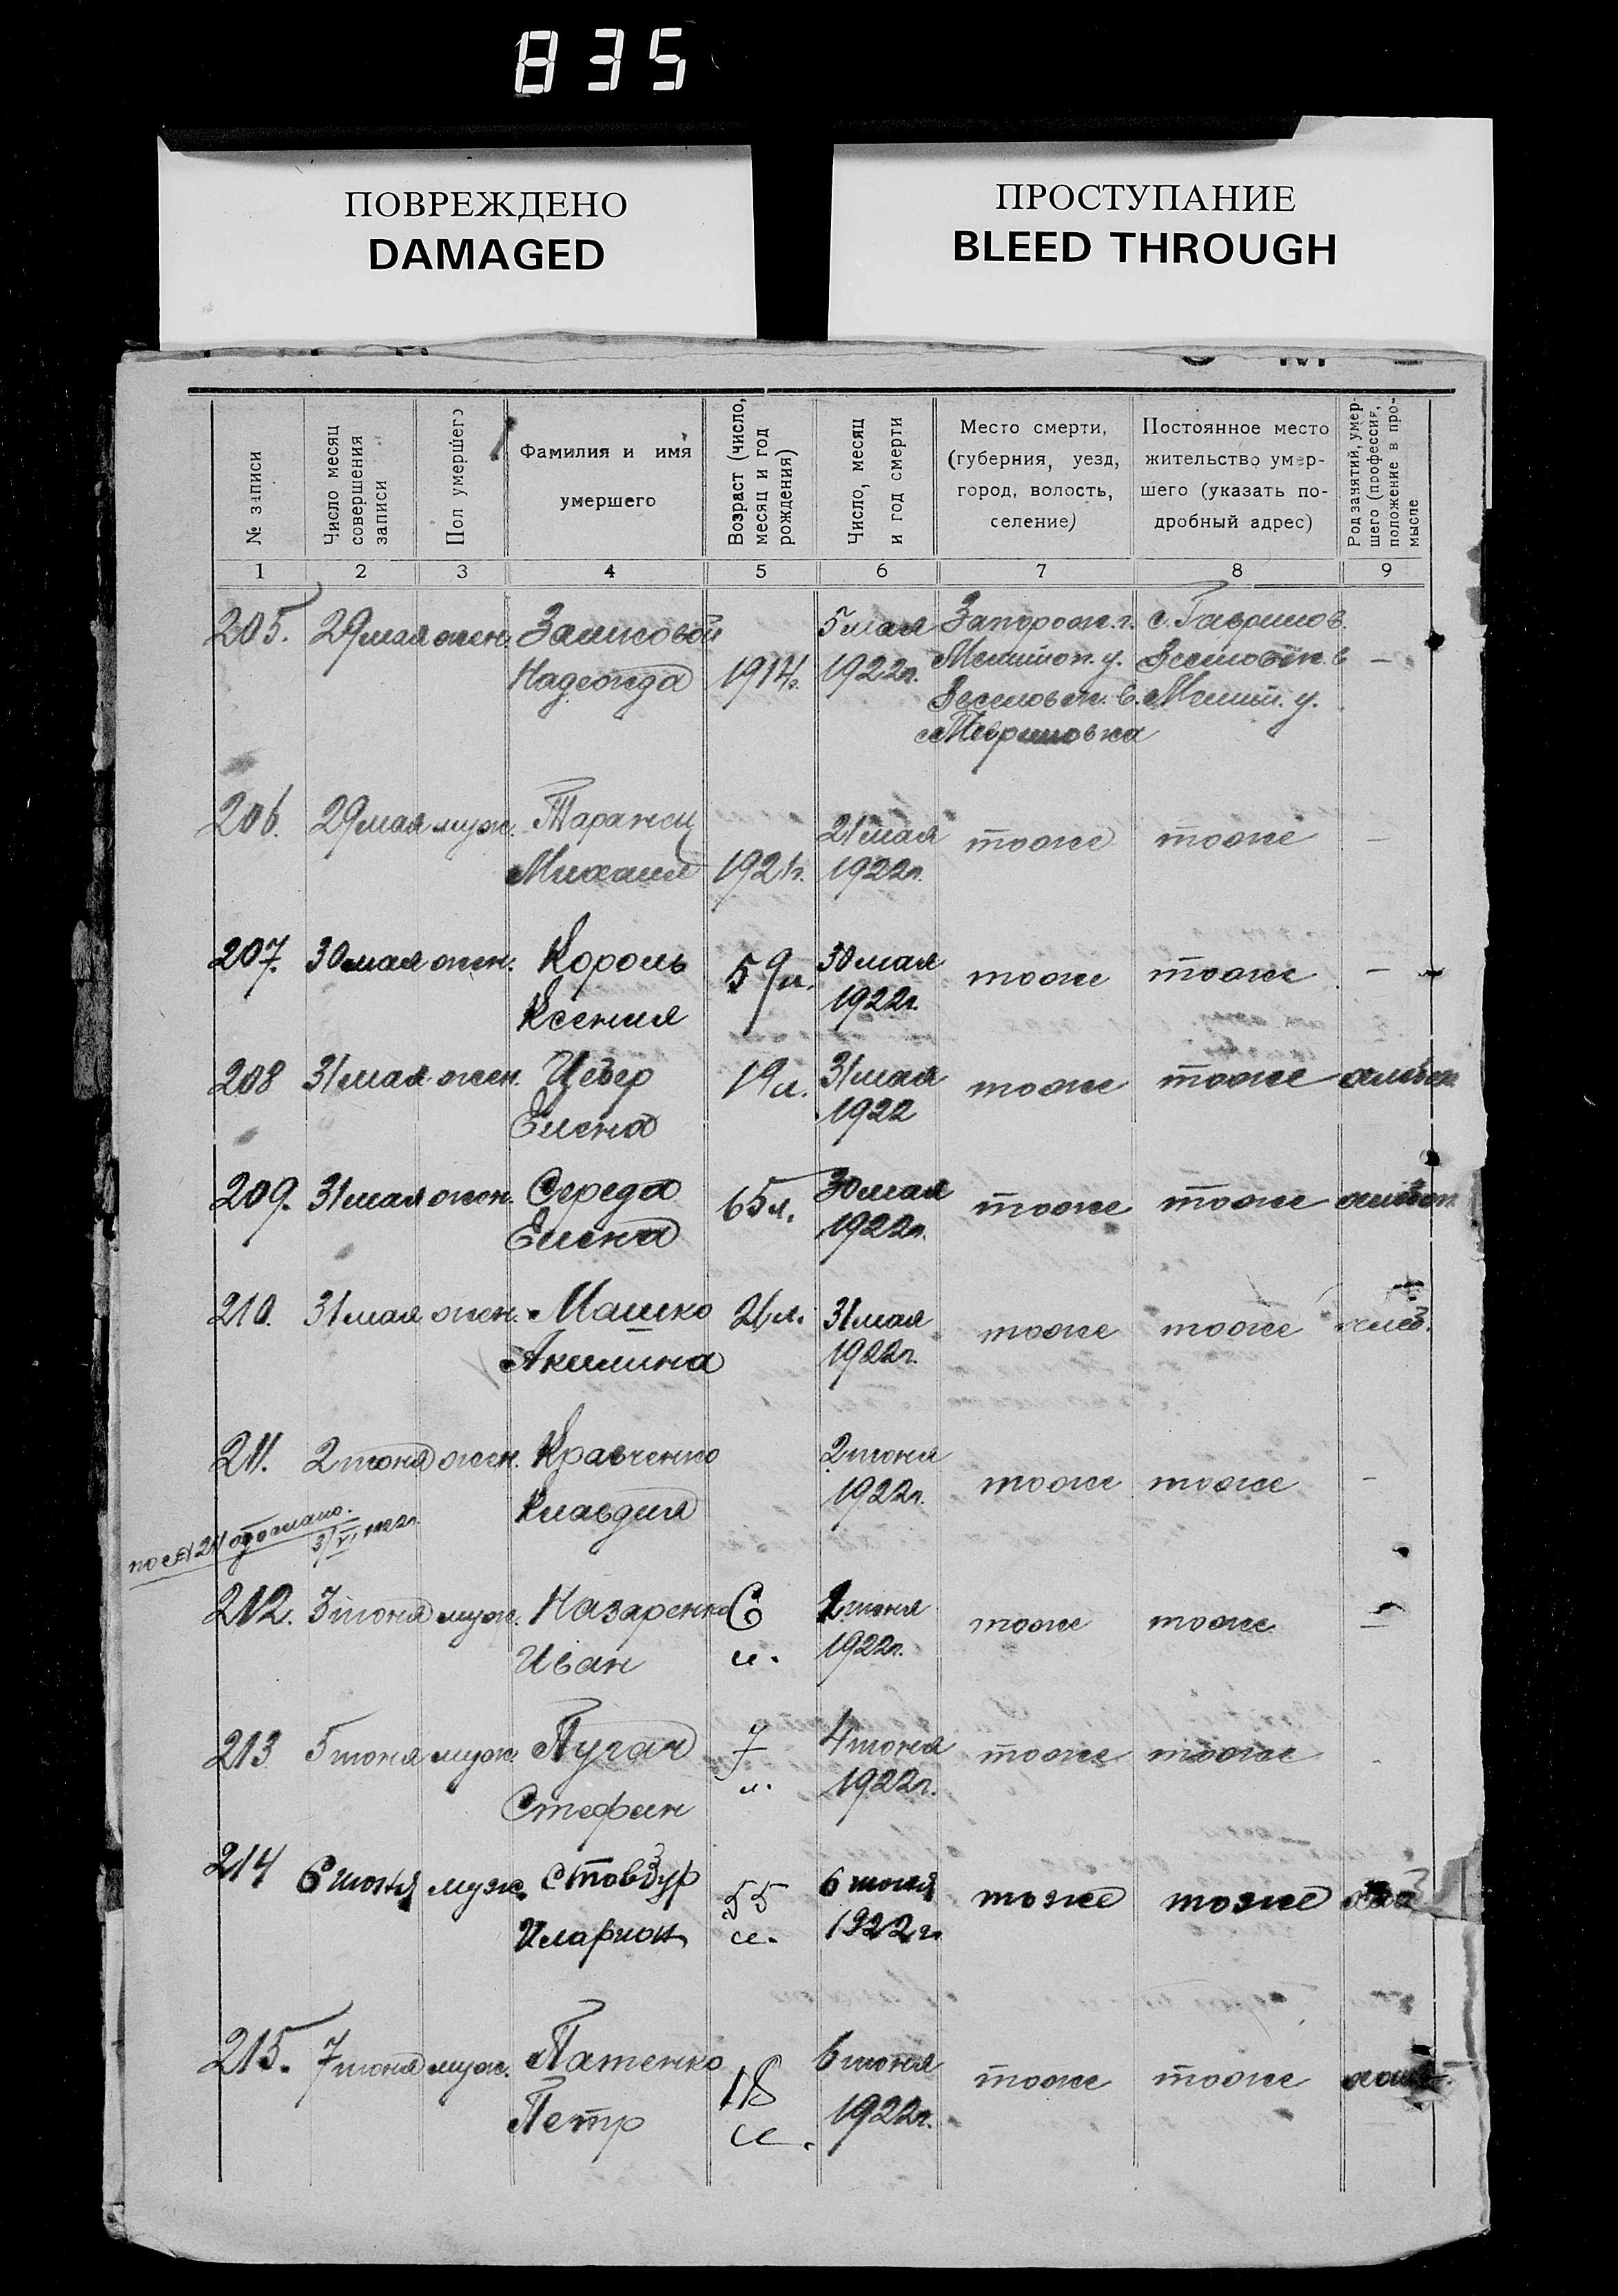 835
ПОВРЕЖДЕНО
DAMAGED
ПРОСТУПАНИЕ
BLEED THROUGH
№ записи
Число месяц совершения записи
Пол умершего
Фамилия и имя умершего
Возраст (число, месяц и год рождения)
Число, месяц и год смерти
Место смерти, (губерния, уезд, город, волость, селение)
Постоянное место жительство умершего (указать подробный адрес)
Род занятий, умершего (профессия, положение в промысле
1 2 3 4 5 6 7 8 9
205. 29 мая жен. 5 мая Запорож. г. с. Гаврилов.
Надежда 1914г. 1922г. Мелитоп. у. Веселовск. в —
Веселовск. в. Мелит. у.
206. 29 мая муж. 21 мая тоже тоже —
Михаил 1921г. 1922г.
207. 30 мая жен. Король 59 л. 30 мая тоже тоже —
Ксения 1922г.
208 31 мая жен. Цебер 19 л. 31 мая тоже тоже
Елена 1922
209. 31 мая жен. Середа 65 л. 30 мая тоже тоже
Елена 1922г.
210. 31 мая жен. Машко 21 л. 31 мая тоже тоже хлеб.
Акилина 1922г.
211. 2 июня жен. Кравченко 2 июня тоже тоже —
Клавдия 1922г.
по № 211 отослано.
3/VI 1922г.
212. 3 июня муж. Назаренко 6 июня тоже тоже —
Иван л. 1922г.
213 5 июня муж. Пугач 7 4 июня тоже тоже -
Стефан л. 1922г.
214 6 июня муж. 55 6 июня тоже тоже
Иларион л. 1922г.
215. 7 июня муж. Патенко 18 6 июня тоже тоже
Петр л. 1922г.